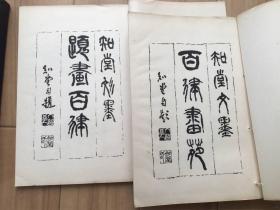 知堂妙墨
題畫百律
知堂自題
知堂文墨
百律畫苑
知堂自題